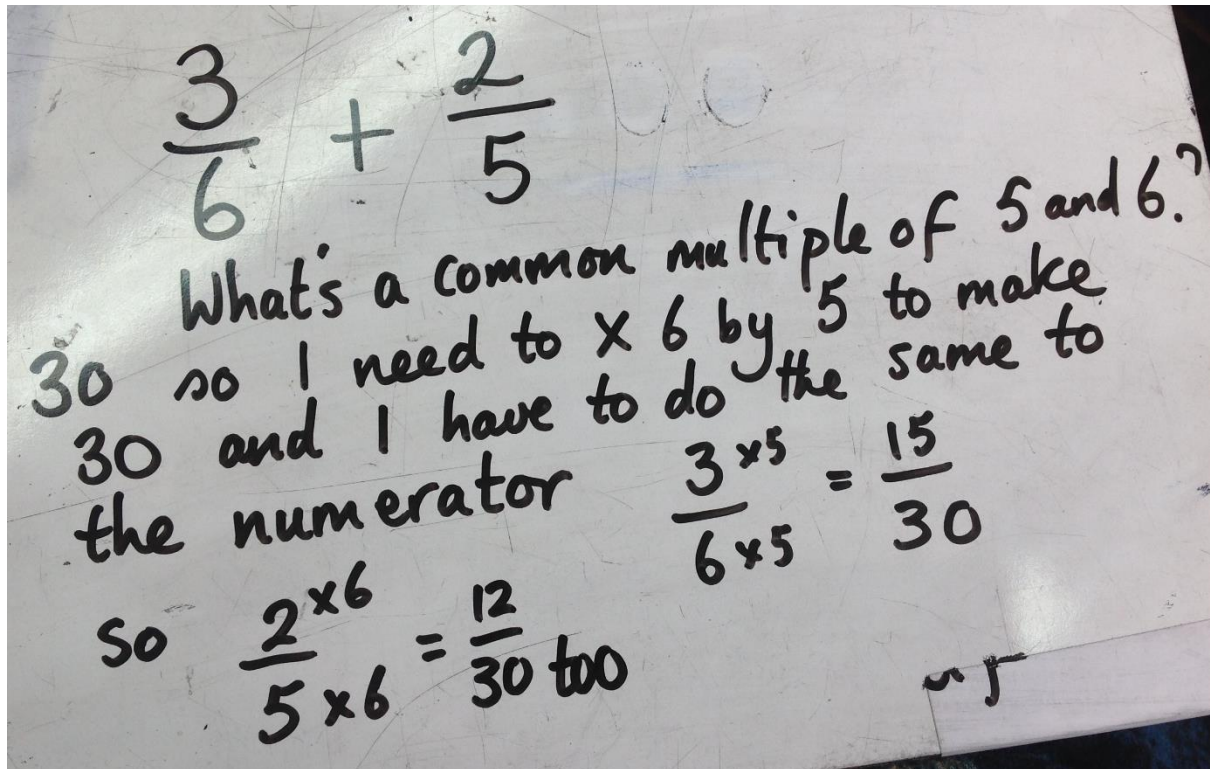 3/6 + 2/5
What's a common multiple of 5 and 6?
30 so I need to x 6 by 5 to make
30 and I have to do the same to
the numerator 3 x5 / 6 x5 = 15/30
So 2 x6 / 5 x6 = 12/30 too